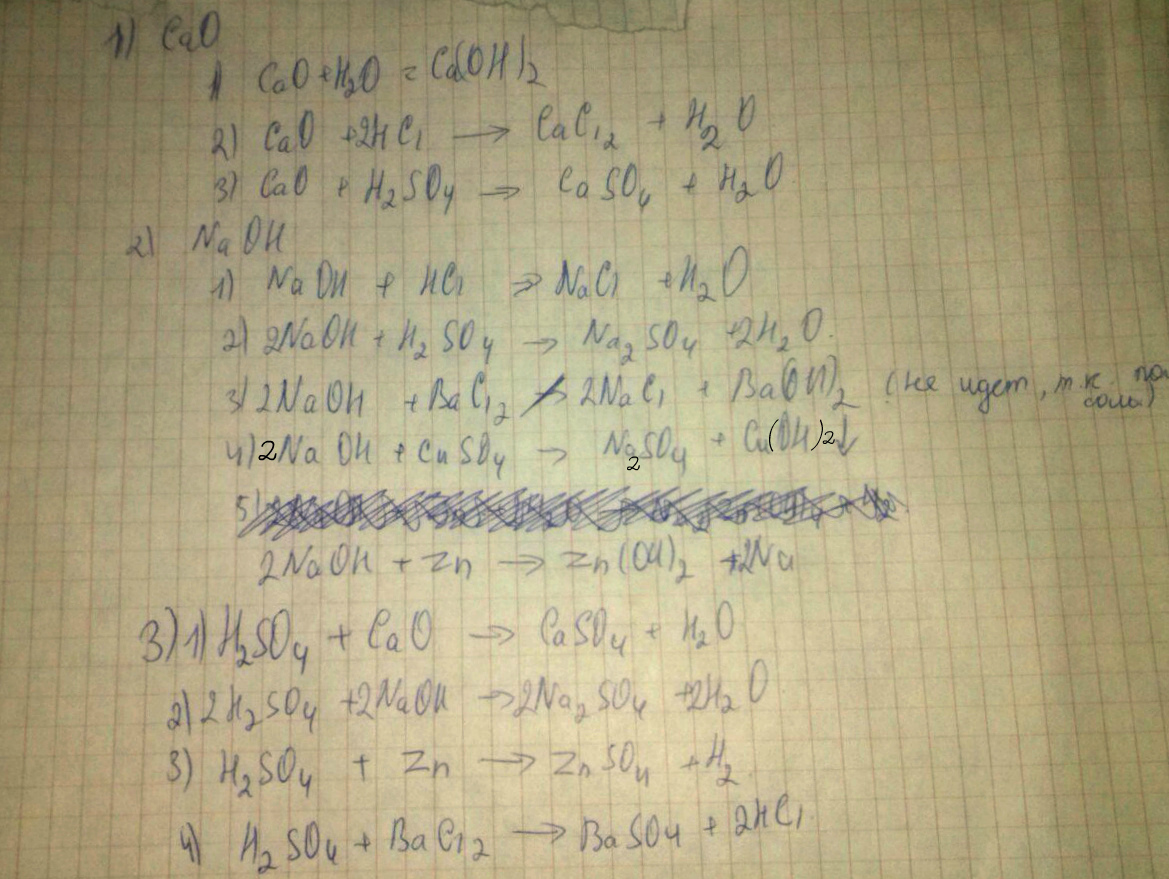 1) CaO
1) CaO + H₂O = Ca(OH)₂
2) CaO + 2HCl → CaCl₂ + H₂O
3) CaO + H₂SO₄ → CaSO₄ + H₂O
2) NaOH
1) NaOH + HCl → NaCl + H₂O
2) 2NaOH + H₂SO₄ → Na₂SO₄ + 2H₂O.
3) 2NaOH + BaCl₂ ↛ 2NaCl + Ba(OH)₂ (не идет, т.к.
соли)
4) 2NaOH + CuSO₄ → Na₂SO₄ + Cu(OH)₂↓
5)
2NaOH + Zn → Zn(OH)₂ + 2Na
3) 1) H₂SO₄ + CaO → CaSO₄ + H₂O
2) 2H₂SO₄ + 2NaOH → 2Na₂SO₄ + 2H₂O
3) H₂SO₄ + Zn → ZnSO₄ + H₂
4) H₂SO₄ + BaCl₂ → BaSO₄ + 2HCl